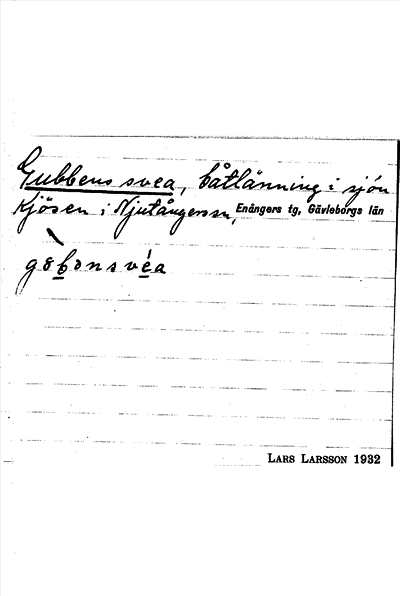 Gubbens svea, båtlänning i sjön
Kjösen i Njutångers sn, Enångers tg, Gävleborgs län
gobonsvéa
LARS LARSSON 1932